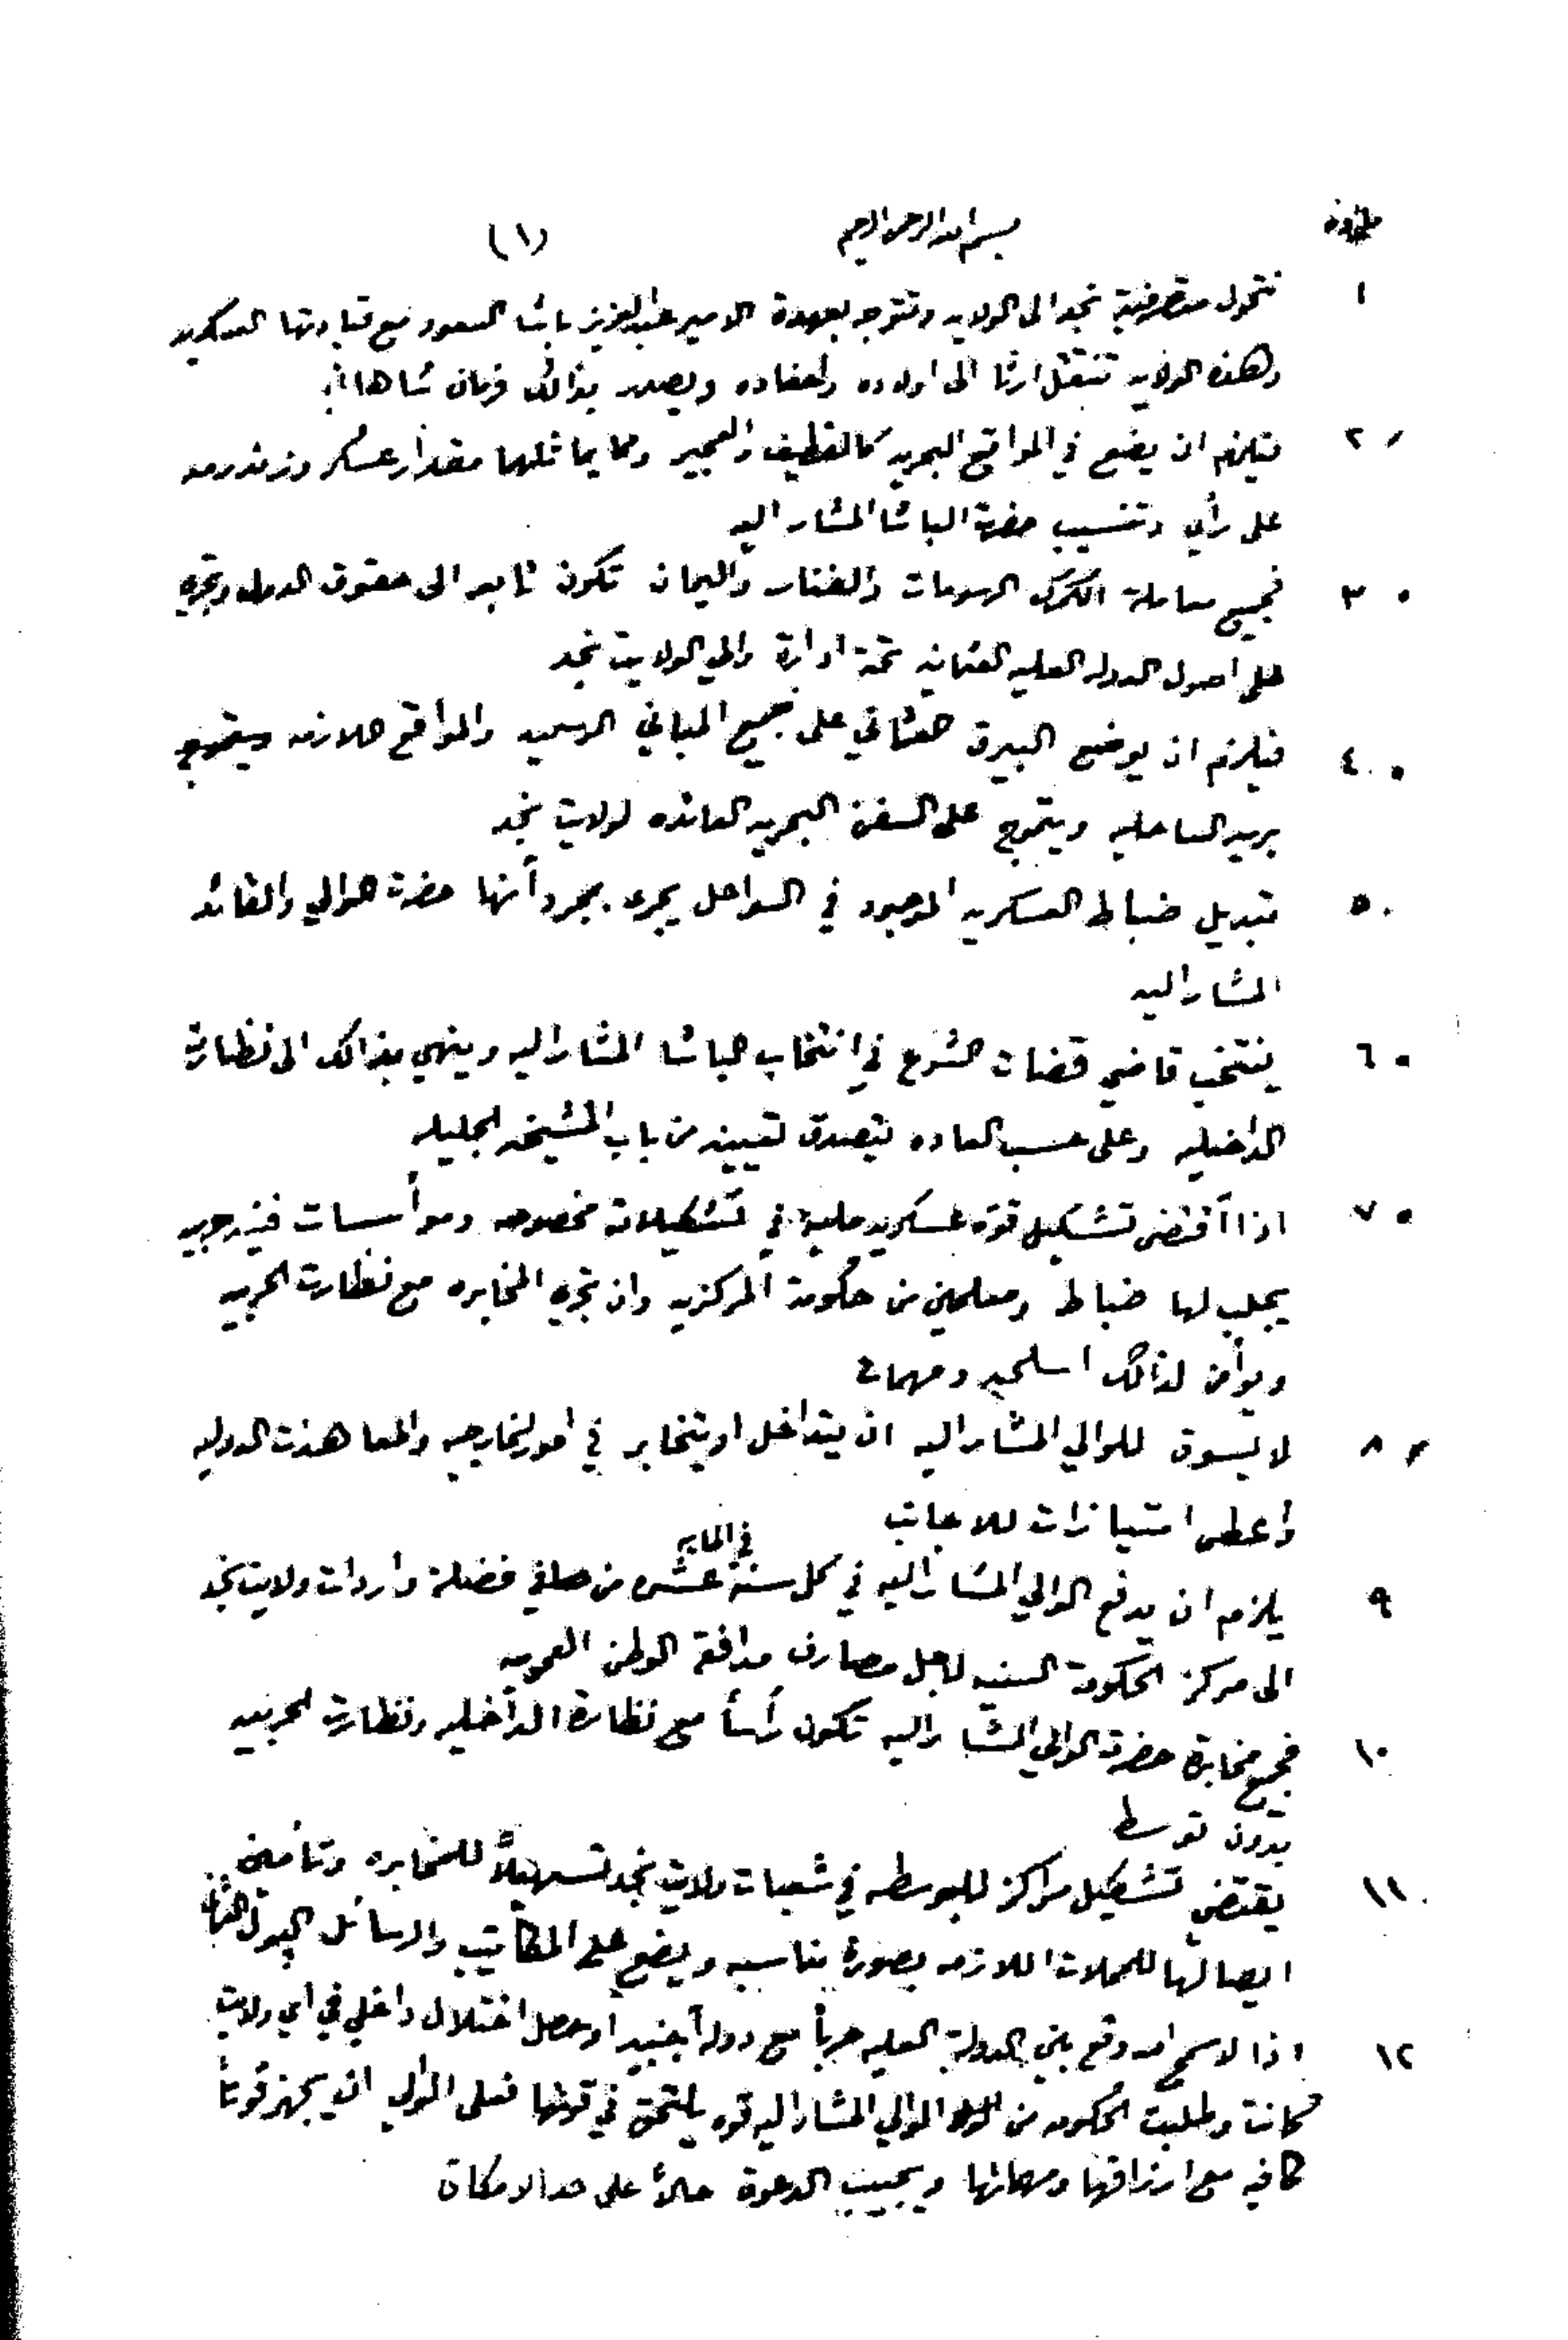 بسم الله الرحمن الرحيم (١)
١ تتحول متصرفية نجد الى الولايه وتتوجه بعهدة الامير عبدالعزيز باشا السعود مع قيادتها العسكريه
وهذه الولايه تنتقل ارثا الى اولاده واحفاده ويصدر بذالك فرمان شاهاني
٢ فيلزم ان يضع في المواقع البحريه كالقطيف والعجير ومما يماثلهما مقدار عسكر وزندرمه
على رأي وتنسيب حضرة الباشا المشار اليه
٣ فجميع معاملة الكمرك الرسومات والفنار واليمان تكون تابعه الى حقوق الدوله وتجري
على اصول الدوله العليه العثمانيه تحت ادارة والي الولايت نجد
٤ فيلزم ان يوضع البيرق العثماني على جميع المباني الرسميه والمواقع اللازمه ويتموج
بريد الساحليه ويتموج على السفن البحريه العائده لولايت نجد
٥ تبديل ضباط العسكريه الموجود في السواحل يجري بمجرد أنها حضرة الوالي والقائد
المشار اليه
٦ ينتخب قاضي قضات الشرع في انتخاب الباشا المشار اليه وينهي بذالك الى نظارت
الداخليه وعلى حسب العاده يتصدق تعيينه من باب المشيخه الجليله
٧ اذا أقتضى تشكيل قوة عسكريه مليه في تشكيلات مخصوصه وموأسسات فيندرجيه
يجلب لها ضباط ومعلمين من حكومة المركزيه وان تجري المخابره مع نظارت الحربيه
ويوأمن لذالك اسلحيه ومهمات
٨ لا يسوق للوالي المشار اليه ان يتداخل او يتخابر في امور الخارجيه والمعاهدت الدوليه
وأعطى امتيازات للاجانب
في المايه
٩ يلزم ان يدفع الوالي المشار اليه في كل سنة عشر من صافي فضلة واردات ولايت نجد
الى مركز الحكومة السنيه لاجل مصارف مدافعة الوطن العموميه
١٠ فجميع مخابرة حضرة الوالي المشار اليه تكون رأساً مع نظارة الداخليه ونظارت الحربيه
بدون توسط
١١ يقتضي تشكيل مراكز للبوسطه في شعبات ولايت نجد تسهيلاً للمخابره وتأمين
ايصالها للمحلات اللازمه بصورة مناسبه ويضع على المكاتيب والرسائل البول العثماني
١٢ اذا لا سمح الله وقع بين الدولة العليه حرباً مع دولة أجنبيه او حصل اختلال داخلي في اي ولايت
كانت وطلبت الحكومه من الوالي المشار اليه قوه يلتحق في قوتها فعلى الوالي ان يجهز قوتاً
كافيه مع ارزاقها ومهماتها ويجيب الدعوة حالاً على حد الامكان